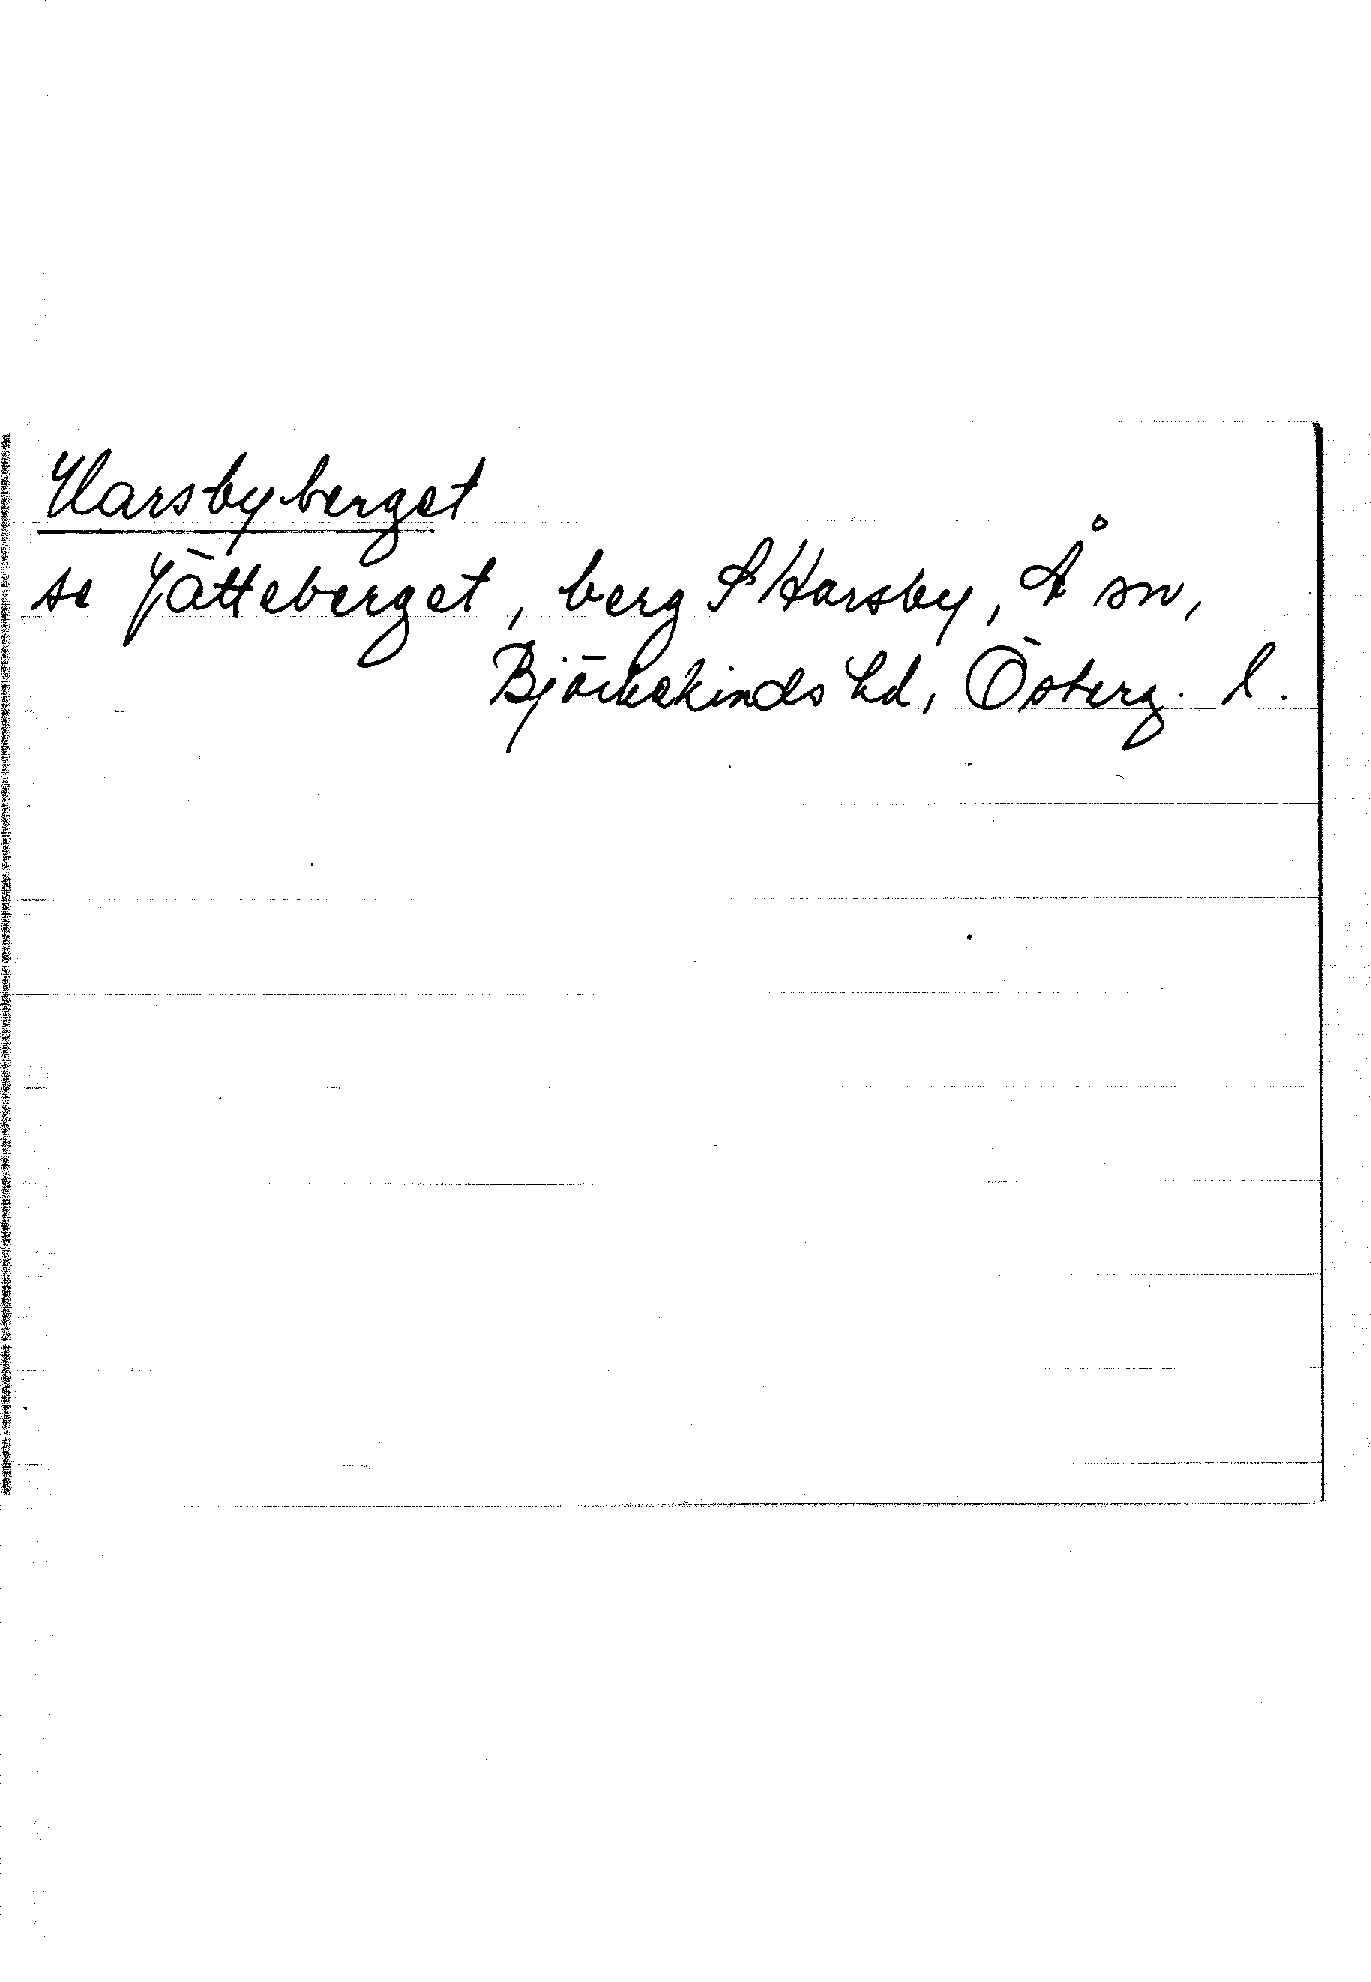 Harsbyberget
se Jätteberget, berg S Harsby, Å sn,
Björkekinds hd, Österg. l.